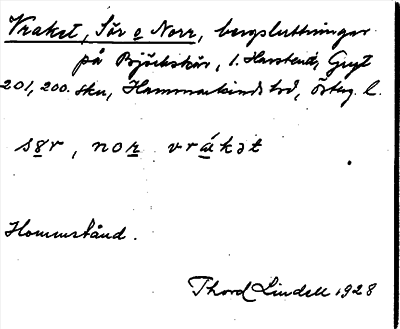 Vraket, Sör o Norr, bergsluttningar
på Björkskär, 1. Harstena, Gryt
201, 200. sku, Hammarkinds hd, Österg. l.
sør, nor vrákət
Hommstånd.
Thord Lindell 1928